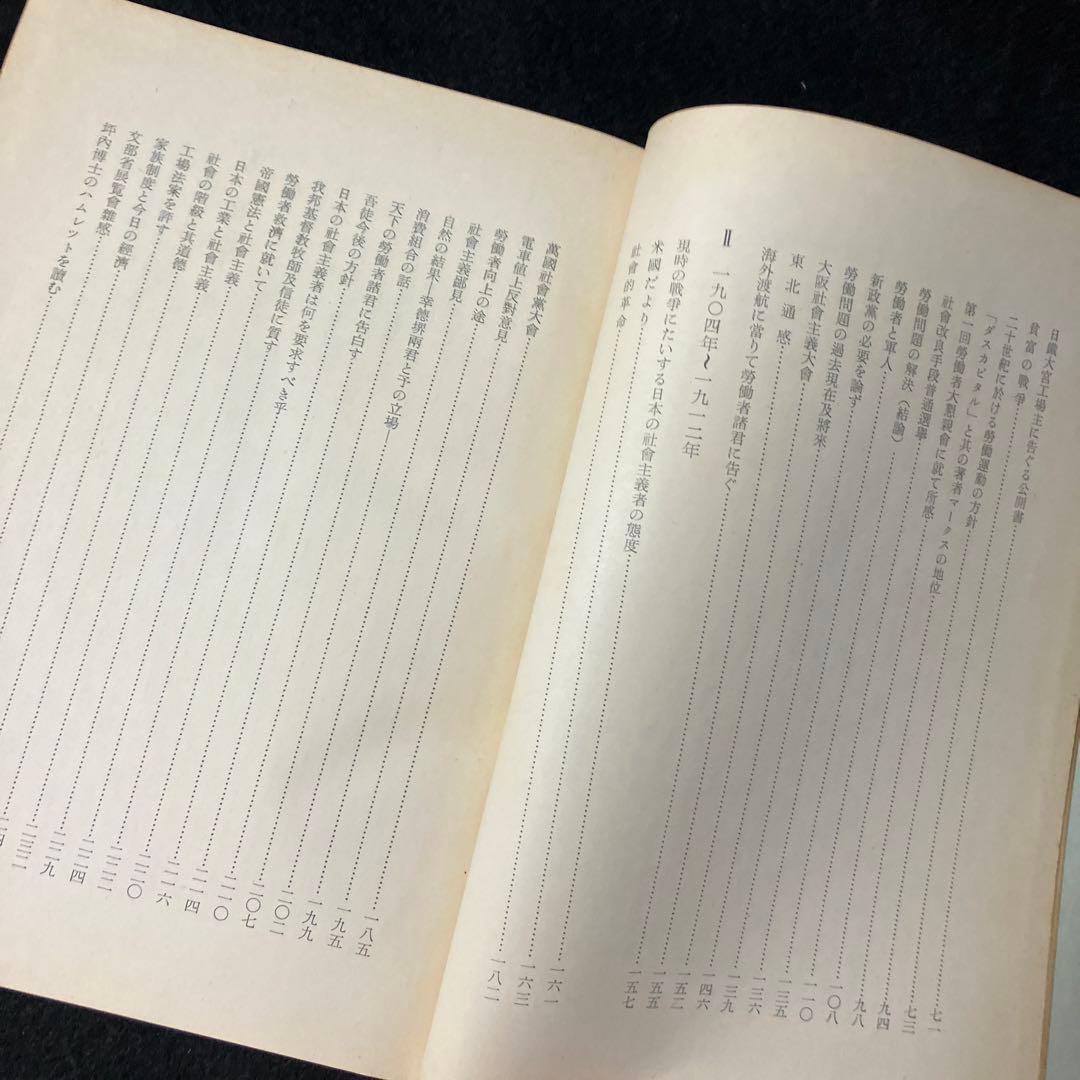 日鐵大宮工場主に告ぐる公開書……七一
貧富の戰爭……七三
二十世紀に於ける勞働運動の方針……九四
「ダスカピタル」と其の著者マークスの地位……九八
第一回勞働者大懇親會に就て所感……一〇八
社會改良手段普通選擧……一一〇
勞働問題の解決(結論)……一三五
勞働者と軍人……一三六
新政黨の必要を論ず……一三九
勞働問題の過去現在及將來……一四六
大阪社會主義大會……一五二
東北通感……一五五
海外渡航に當りて勞働者諸君に告ぐ……一五七
Ⅱ 一九〇四年〜一九一二年
現時の戰爭にたいする日本の社會主義者の態度……一六一
米國だより……一六三
社會的革命……一八二
萬國社會黨大會……一八五
電車値上反對意見……一九五
勞働者向上の途……一九九
社會主義鄙見……二〇二
自然の結果―幸德堺兩君と予の立場―……二〇七
消費組合の話……二一〇
天下の勞働者諸君に告白す……二一四
吾徒今後の方針……二一六
日本の社會主義者は何を要求すべき乎……二二〇
我邦基督敎牧師及信徒に質す……二二二
勞働者救濟に就いて……二二四
帝國憲法と社會主義……二二九
日本の工業と社會主義……二三二
社會の階級と其道德
工場法案を評す
家族制度と今日の經濟
文部省展覽會雜感
坪內博士のハムレットを讀む